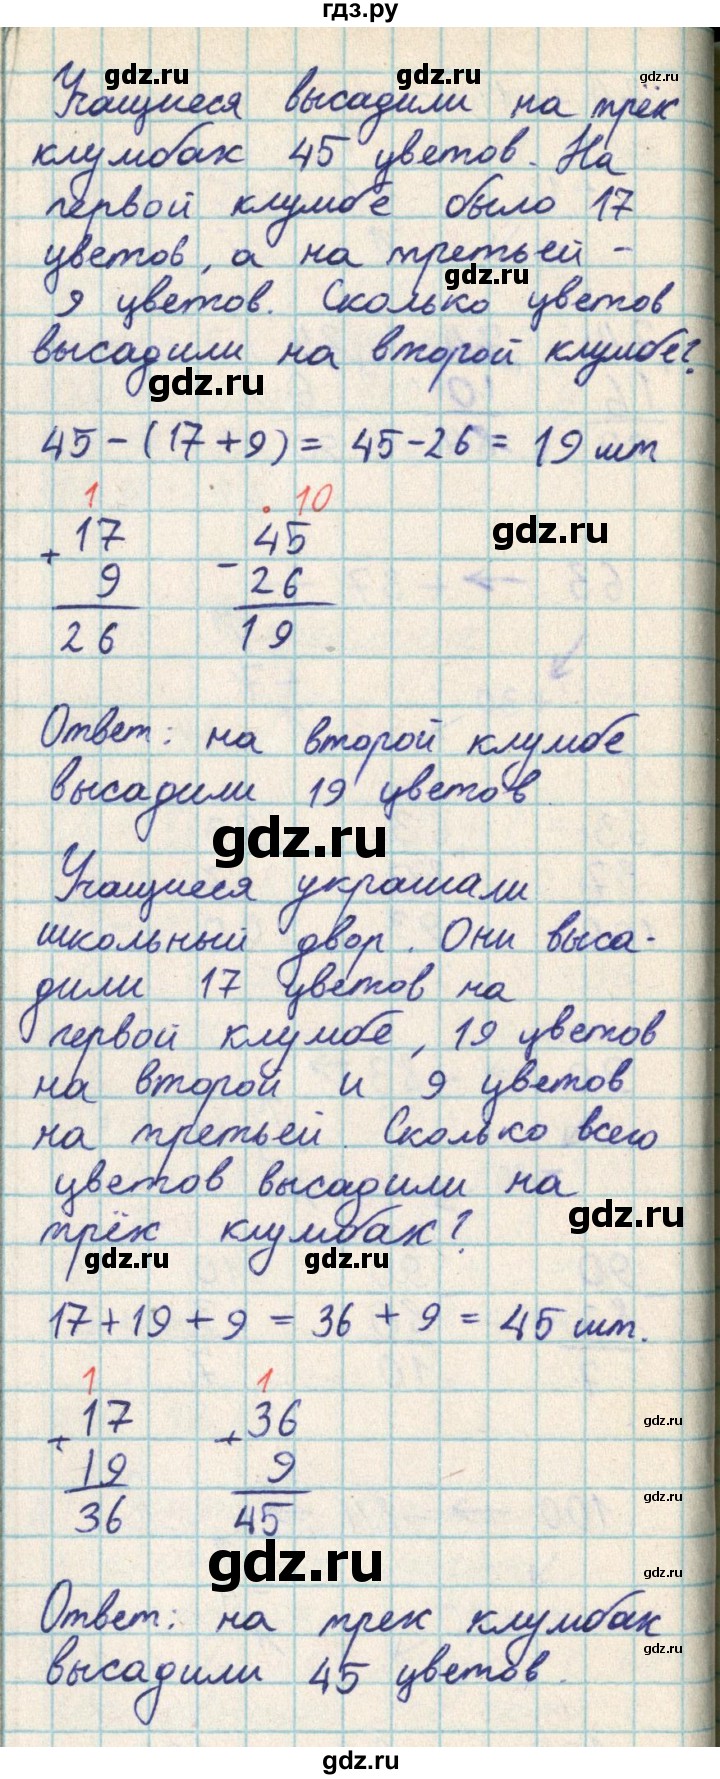 гдз.ру
gdz.ru gdz.ru gdz.ru
Учащиеся высадили на трёх
клумбах 45 цветов. На
первой клумбе было 17
цветов, а на третьей -
gdz.ru
9 цветов. Сколько цветов
высадили на второй клумбе?
gdz.ru
45-(17+9)= 45-26= 19 шт
1 . 10
+ 17 - 45
gdz.ru
9 26
26 19
Ответ: на второй клумбе
высадили 19 цветов
gdz.ru
Учащиеся украшали
школьный двор. Они выса-
дили 17 цветов на
первой клумбе, 19 цветов
на второй и 9 цветов
на третьей. Сколько всего
цветов высадили на
gdz.ru
трёх клумбах?
gdz.ru gdz.ru
17+19+9=36+9=45 шт.
1 1
+ 17 + 36
gdz.ru
19 9
gdz.ru
36 45
gdz.ru
gdz.ru
Ответ: на трех клумбах
gdz.ru
высадили 45 цветов.
gdz.ru